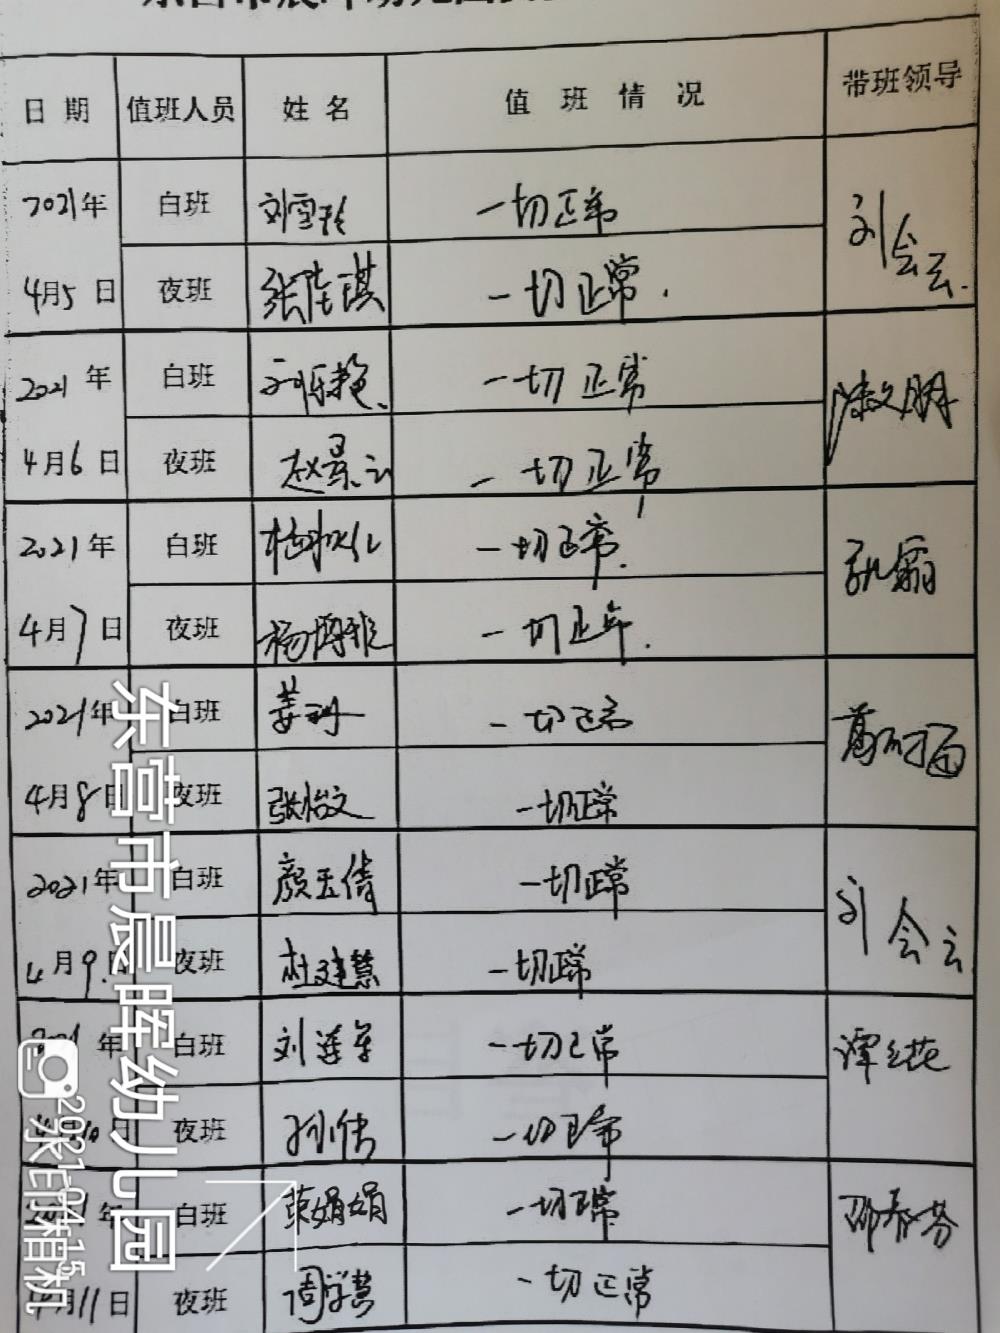 日期 值班人员 姓名 值班情况 带班领导
2021年 白班 刘雪玲 一切正常
4月5日 夜班 张佳琪 一切正常. 刘会云.
2021年 白班 刘乐艳 一切正常
4月6日 夜班 赵景云 一切正常
2021年 白班 一切正常.
4月7日 夜班 杨博雅 一切正常.
2021年 白班 姜珊 一切正常
4月8日 夜班 张怡文 一切正常
2021年 白班 颜玉倩 一切正常
4月9日 夜班 杜建慧 一切正常 刘会云
2021年 白班 刘莲军 一切正常
4月10日 夜班 孙倩 一切正常
2021年 白班 荣娟娟 一切正常 邵春芬
4月11日 夜班 周学慧 一切正常
东营市晨晖幼儿园
2021.04.15
水印相机